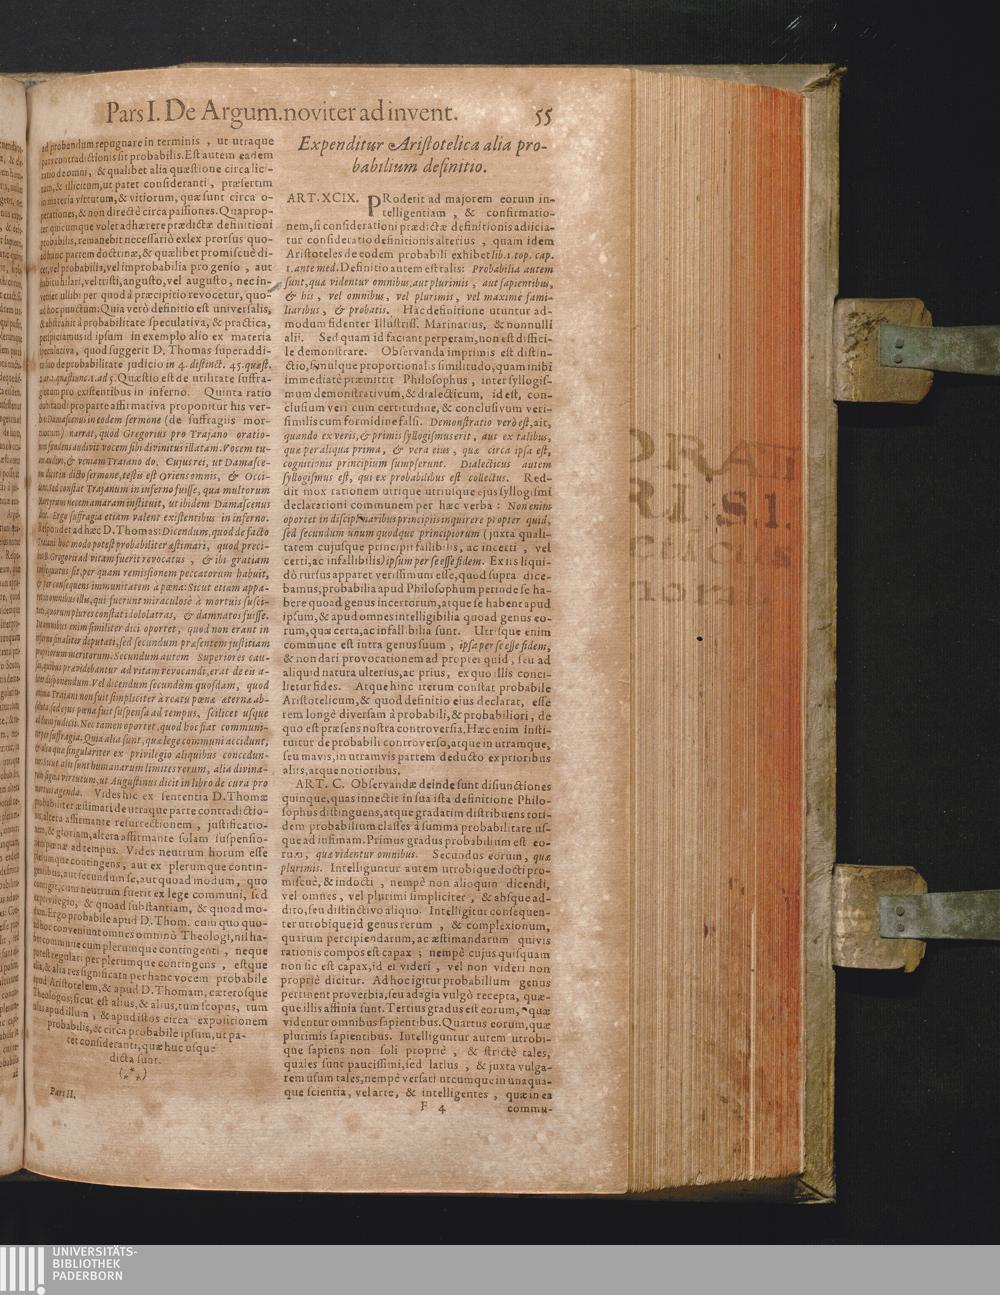 Pars I. De Argum. noviter ad invent. 55
ad probandum repugnare in terminis , ut utraque
pars contradictionis sit probabilis. Est autem eadem
ratio de omni, & qualibet alia quæstione circa lici-
tum, & illicitum, ut patet consideranti , præsertim
in materia virtutum, & vitiorum, quæ sunt circa o-
perationes, & non directè circa passiones. Quaprop-
ter quicumque volet adhærere prædictæ definitioni
probabilis, remanebit necessariò exlex prorsus quo-
ad hanc partem doctrinæ, & quælibet promiscuè di-
cet, vel probabilia, vel improbabilia pro genio , aut
habitu hilari, vel tristi, angusto, vel augusto, nec in-
veniet ullibi per quod à præcipitio revocetur, quo-
ad hoc punctum. Quia verò definitio est universalis,
& abstrahit à probabilitate speculativa, & practica,
perspiciamus id ipsum in exemplo alio ex materia
speculativa, quod suggerit D. Thomas superaddi-
to suo de probabilitate judicio in 4. distinct. 45. quæst.
2. ar. 2. quæstiunc. 1. ad 5. Quæstio est de utilitate suffra-
giorum pro existentibus in inferno. Quinta ratio
dubitandi pro parte affirmativa proponitur his ver-
bis: Damascenus in eodem sermone (de suffragiis mor-
tuorum) narrat, quod Gregorius pro Trajano oratio-
nem fundens audivit vocem sibi divinitus illatam. Vocem tu-
am audivi, & veniam Traiano do. Cujus rei, ut Damasce-
nus dicit in dicto sermone, testis est Oriens omnis, & Occi-
dens. Sed constat Trajanum in inferno fuisse, qua multorum
Martyrum necem amaram instituit, ut ibidem Damascenus
dicit. Ergo suffragia etiam valent existentibus in inferno.
Respondet ad hæc D. Thomas: Dicendum, quod de facto
Traiani hoc modo potest probabiliter æstimari, quod preci-
bus B. Gregorii ad vitam fuerit revocatus , & ibi gratiam
consequutus sit, per quam remissionem peccatorum habuit,
& per consequens immunitatem à pœna: Sicut etiam appa-
ret in omnibus illis, qui fuerunt miraculosè à mortuis susci-
tati, quorum plures constat idololatras, & damnatos fuisse.
De omnibus enim similiter dici oportet, quod non erant in
inferno finaliter deputati, sed secundum præsentem justitiam
propriorum meritorum. Secundum autem Superiores cau-
sas, quibus prævidebantur ad vitam revocandi, erat de eis a-
liter disponendum. Vel dicendum secundùm quosdam, quod
anima Trajani non fuit simpliciter à reatu pœnæ æternæ ab-
soluta, sed ejus pœna fuit suspensa ad tempus, scilicet usque
ad diem judicii. Nec tamen oportet, quod hoc fiat communi-
ter per suffragia. Quia alia sunt, quæ lege communi accidunt,
& alia quæ singulariter ex privilegio aliquibus concedun-
tur. Sicut alii sunt humanarum limites rerum, alia divina-
rum signa virtutum, ut Augustinus dicit in libro de cura pro
mortuis agenda. Vides hic ex sententia D. Thomæ
probabiliter æstimari de utraque parte contradictio-
nis, altera affirmante resurrectionem , justificatio-
nem, & gloriam, altera affirmante solam suspensio-
nem pœnæ ad tempus. Vides neutrum horum esse
plerumque contingens, aut ex plerumque contin-
gentibus, aut secundum se, aut quoad modum, quo
contigit, cum neutrum fuerit ex lege communi, sed
ex privilegio, & quoad substantiam, & quoad mo-
dum. Ergo probabile apud D. Thom. cum quo quo-
ad hoc conveniunt omnes omninò Theologi, nil ha-
bet commune cum plerumque contingenti , neque
potest regulari per plerumque contingens , estque
alia, & alia res significata per hanc vocem probabile
apud Aristotelem, & apud D. Thomam, cæterosque
Theologos; sicut est alius, & alius, tum scopus, tum
usus apud illum , & apud istos circa expositionem
probabilis, & circa probabile ipsum, ut pa-
tet consideranti, quæ huc usque
dicta sunt.
(***)
Pars II.
Expenditur Aristotelica alia pro-
babilium definitio.
ART. XCIX. PRoderit ad majorem eorum in-
telligentiam , & confirmatio-
nem, si considerationi prædictæ definitionis adiicia-
tur consideratio definitionis alterius , quam idem
Aristoteles de eodem probabili exhibet lib. 1. top. cap.
1. ante med. Definitio autem est talis: Probabilia autem
sunt, quæ videntur omnibus, aut plurimis , aut sapientibus,
& his , vel omnibus, vel plurimis, vel maximè fami-
liaribus , & probatis. Hac definitione utuntur ad-
modum fidenter Illustriss. Marinarius, & nonnulli
alii. Sed quam id faciant perperam, non est diffici-
le demonstrare. Observanda imprimis est distin-
ctio, simulque proportionalis similitudo, quam inibi
immediatè præmittit Philosophus , inter syllogis-
mum demonstrativum, & dialecticum, id est, con-
clusium veri cum certitudine, & conclusivum veri-
similis cum formidine falsi. Demonstratio verò est, ait,
quando ex veris, & primis syllogismus erit, aut ex talibus,
quæ per aliqua prima, & vera eius , quæ circa ipsa est,
cognitionis principium sumpserunt. Dialecticus autem
syllogismus est, qui ex probabilibus est collectus. Red-
dit mox rationem utrique utriusque ejus syllogismi
declarationi communem per hæc verba : Non enim
oportet in disciplinaribus principiis inquirere propter quid,
sed secundum unum quodque principiorum (juxta quali-
tatem cujusque principii fallibilis, ac incerti , vel
certi, ac infallibilis) ipsum per se esse fidem. Ex iis liqui-
dò rursus apparet verissimum esse, quod supra dice-
bamus, probabilia apud Philosophum perinde se ha-
bere quoad genus incertorum, atque se habent apud
ipsum, & apud omnes intelligibilia quoad genus eo-
rum, quæ certa, ac infallibilia sunt. Utrisque enim
commune est intra genus suum , ipsa per se esse fidem,
& non dari provocationem ad propter quid, seu ad
aliquid natura ulterius, ac prius, ex quo illis conci-
lietur fides. Atque hinc iterum constat probabile
Aristotelicum, & quod definitio eius declarat, esse
rem longè diversam à probabili, & probabiliori, de
quo est præsens nostra controversia, Hæc enim insti-
tuitur de probabili controverso, atque in utramque,
seu mavis, in utramvis partem deducto ex prioribus
aliis, atque notioribus.
ART. C. Observandæ deinde sunt disiunctiones
quinque, quas innectit in sua ista definitione Philo-
sophus distinguens, atque gradatim distribuens toti-
dem probabilium classes à summa probabilitate us-
que ad infimam. Primus gradus probabilium est eo-
rum, quæ videntur omnibus. Secundus eorum, quæ
plurimis. Intelliguntur autem utrobique docti pro-
miscuè, & indocti , nempè non alioquin dicendi,
vel omnes, vel plurimi simpliciter , & absque ad-
dito, seu distinctivo aliquo. Intelligitur consequen-
ter utrobique id genus rerum , & complexionum,
quarum percipiendarum, ac æstimandarum quivis
rationis compos est capax ; nempè cujus quisquam
non sic est capax, id ei videri , vel non videri non
propriè dicitur. Ad hoc igitur probabilium genus
pertinent proverbia, seu adagia vulgò recepta, quæ-
que illis affinia sunt. Tertius gradus est eorum, quæ
videntur omnibus sapientibus. Quartus eorum, quæ
plurimis sapientibus. Intelliguntur autem utrobi-
que sapiens non soli propriè , & strictè tales,
quales sunt paucissimi, sed latius , & juxta vulga-
rem usum tales, nempè versati utcumque in unaqua-
que scientia, vel arte, & intelligentes , quæ in ea
F 4 commu-
UNIVERSITÄTS-
BIBLIOTHEK
PADERBORN